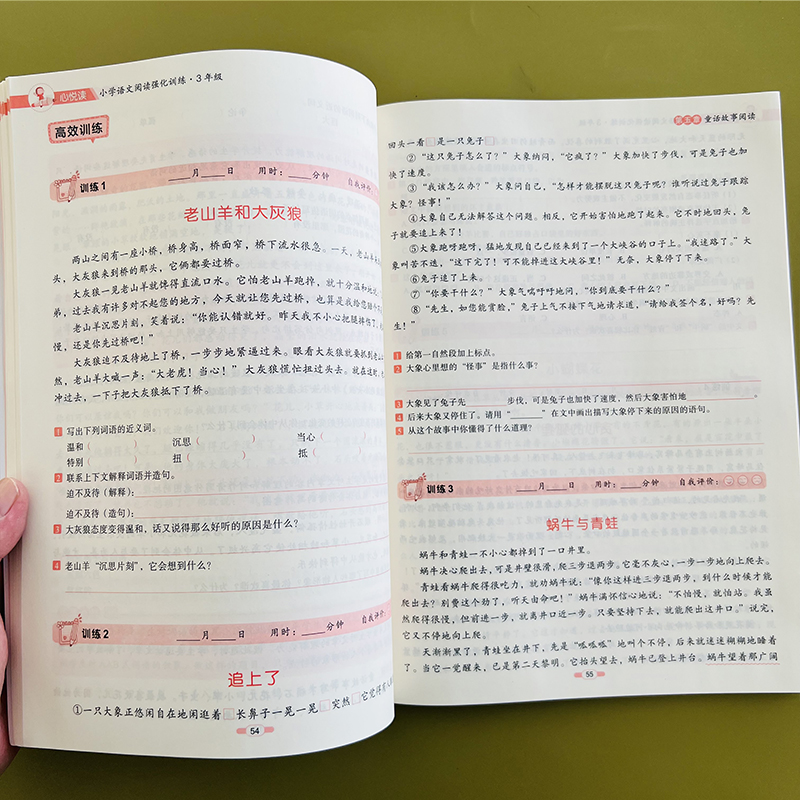 心悦读 小学语文阅读强化训练·3年级
高效训练
训练1 ____月____日 用时：____分钟 自我评价：
老山羊和大灰狼
两山之间有一座小桥，桥身高，桥面窄，桥下流水很急。一天，老山羊来
头，大灰狼来到桥的那头，它俩都要过桥。
大灰狼一见老山羊就馋得直流口水。它怕老山羊跑掉，就十分温和地
弟，过去我有许多对不起您的地方，今天就让您先过桥，也算是我给您
老山羊沉思片刻，笑着说：“你能认错就好。昨天我不小心把腿摔伤了，
慢，还是你先过桥吧！”
大灰狼迫不及待地上了桥，一步步地紧逼过来。眼看大灰狼就要抓到老山
然，老山羊大喊一声：“大老虎！当心！”大灰狼慌忙扭过头去。就在这时，
冲过去，一下子把大灰狼抵下了桥。
1 写出下列词语的近义词。
温和（ ） 沉思（ ） 当心（ ）
特别（ ） 扭（ ） 抵（ ）
2 联系上下文解释词语并造句。
迫不及待（解释）：
迫不及待（造句）：
3 大灰狼态度变得温和，话又说得那么好听的原因是什么？
4 老山羊“沉思片刻”，它会想到什么？
训练2 ____月____日 用时：____分钟 自我评价：
追上了
①一只大象正悠闲自在地闲逛着 长鼻子一晃一晃 突然 它觉得有人
54
第五章 童话故事阅读
回头一看 是一只兔子
②“这只兔子怎么了？”大象纳闷，“它疯了？”大象加快了步伐，可是兔子也加
快了速度。
③“我该怎么办？”大象问自己，“怎样才能摆脱这只兔子呢？谁听说过兔子跟踪
大象？怪事！”
④大象自己无法解答这个问题。相反，它开始害怕地跑了起来。它不时地回头，兔
子就要追上来了！
⑤大象跑呀跑呀，猛地发现自己已经来到了一个大峡谷的口子上。“我迷路了。”大
象叫苦不迭，“这下完了！可不能掉进这大峡谷里！”无奈，大象停了下来。
⑥兔子追了上来。
⑦“你要干什么？”大象气喘吁吁地问，“你到底要干什么？”
⑧“先生，如您能赏脸，”兔子上气不接下气地请求道，“请给我签个名，好吗？先
生！”
1 给第一自然段加上标点。
2 大象心里想的“怪事”是指什么事？
3 大象见了兔子先______步伐，可是兔子也加快了速度，然后大象害怕地______。
4 后来大象又停住了。请用“______”在文中画出描写大象停下来的原因的语句。
5 从这个故事中你懂得了什么道理？
训练3 ____月____日 用时：____分钟 自我评价：
蜗牛与青蛙
蜗牛和青蛙一不小心都掉到了一口井里。
蜗牛决心爬出去，可是井壁很滑，爬三步退两步。它毫不灰心，一步一步地向上爬去。
青蛙看蜗牛爬得很吃力，就劝蜗牛说：“像你这样进三步退两步，到什么时候才能
爬出去？别费这个劲了，听天由命吧！”蜗牛满怀信心地说：“不怕慢，就怕站。我虽
然爬得很慢，但前进一步，就离井口近一步。只要坚持下去，就能爬出这井口。”说完，
它又不停地向上爬。
天渐渐黑了，青蛙坐在井下，先是“呱呱呱”地叫个不停，后来就迷迷糊糊地睡着
了。当它一觉醒来，已是第二天黎明。它抬头望去，蜗牛已登上井台。蜗牛望着那广阔
55